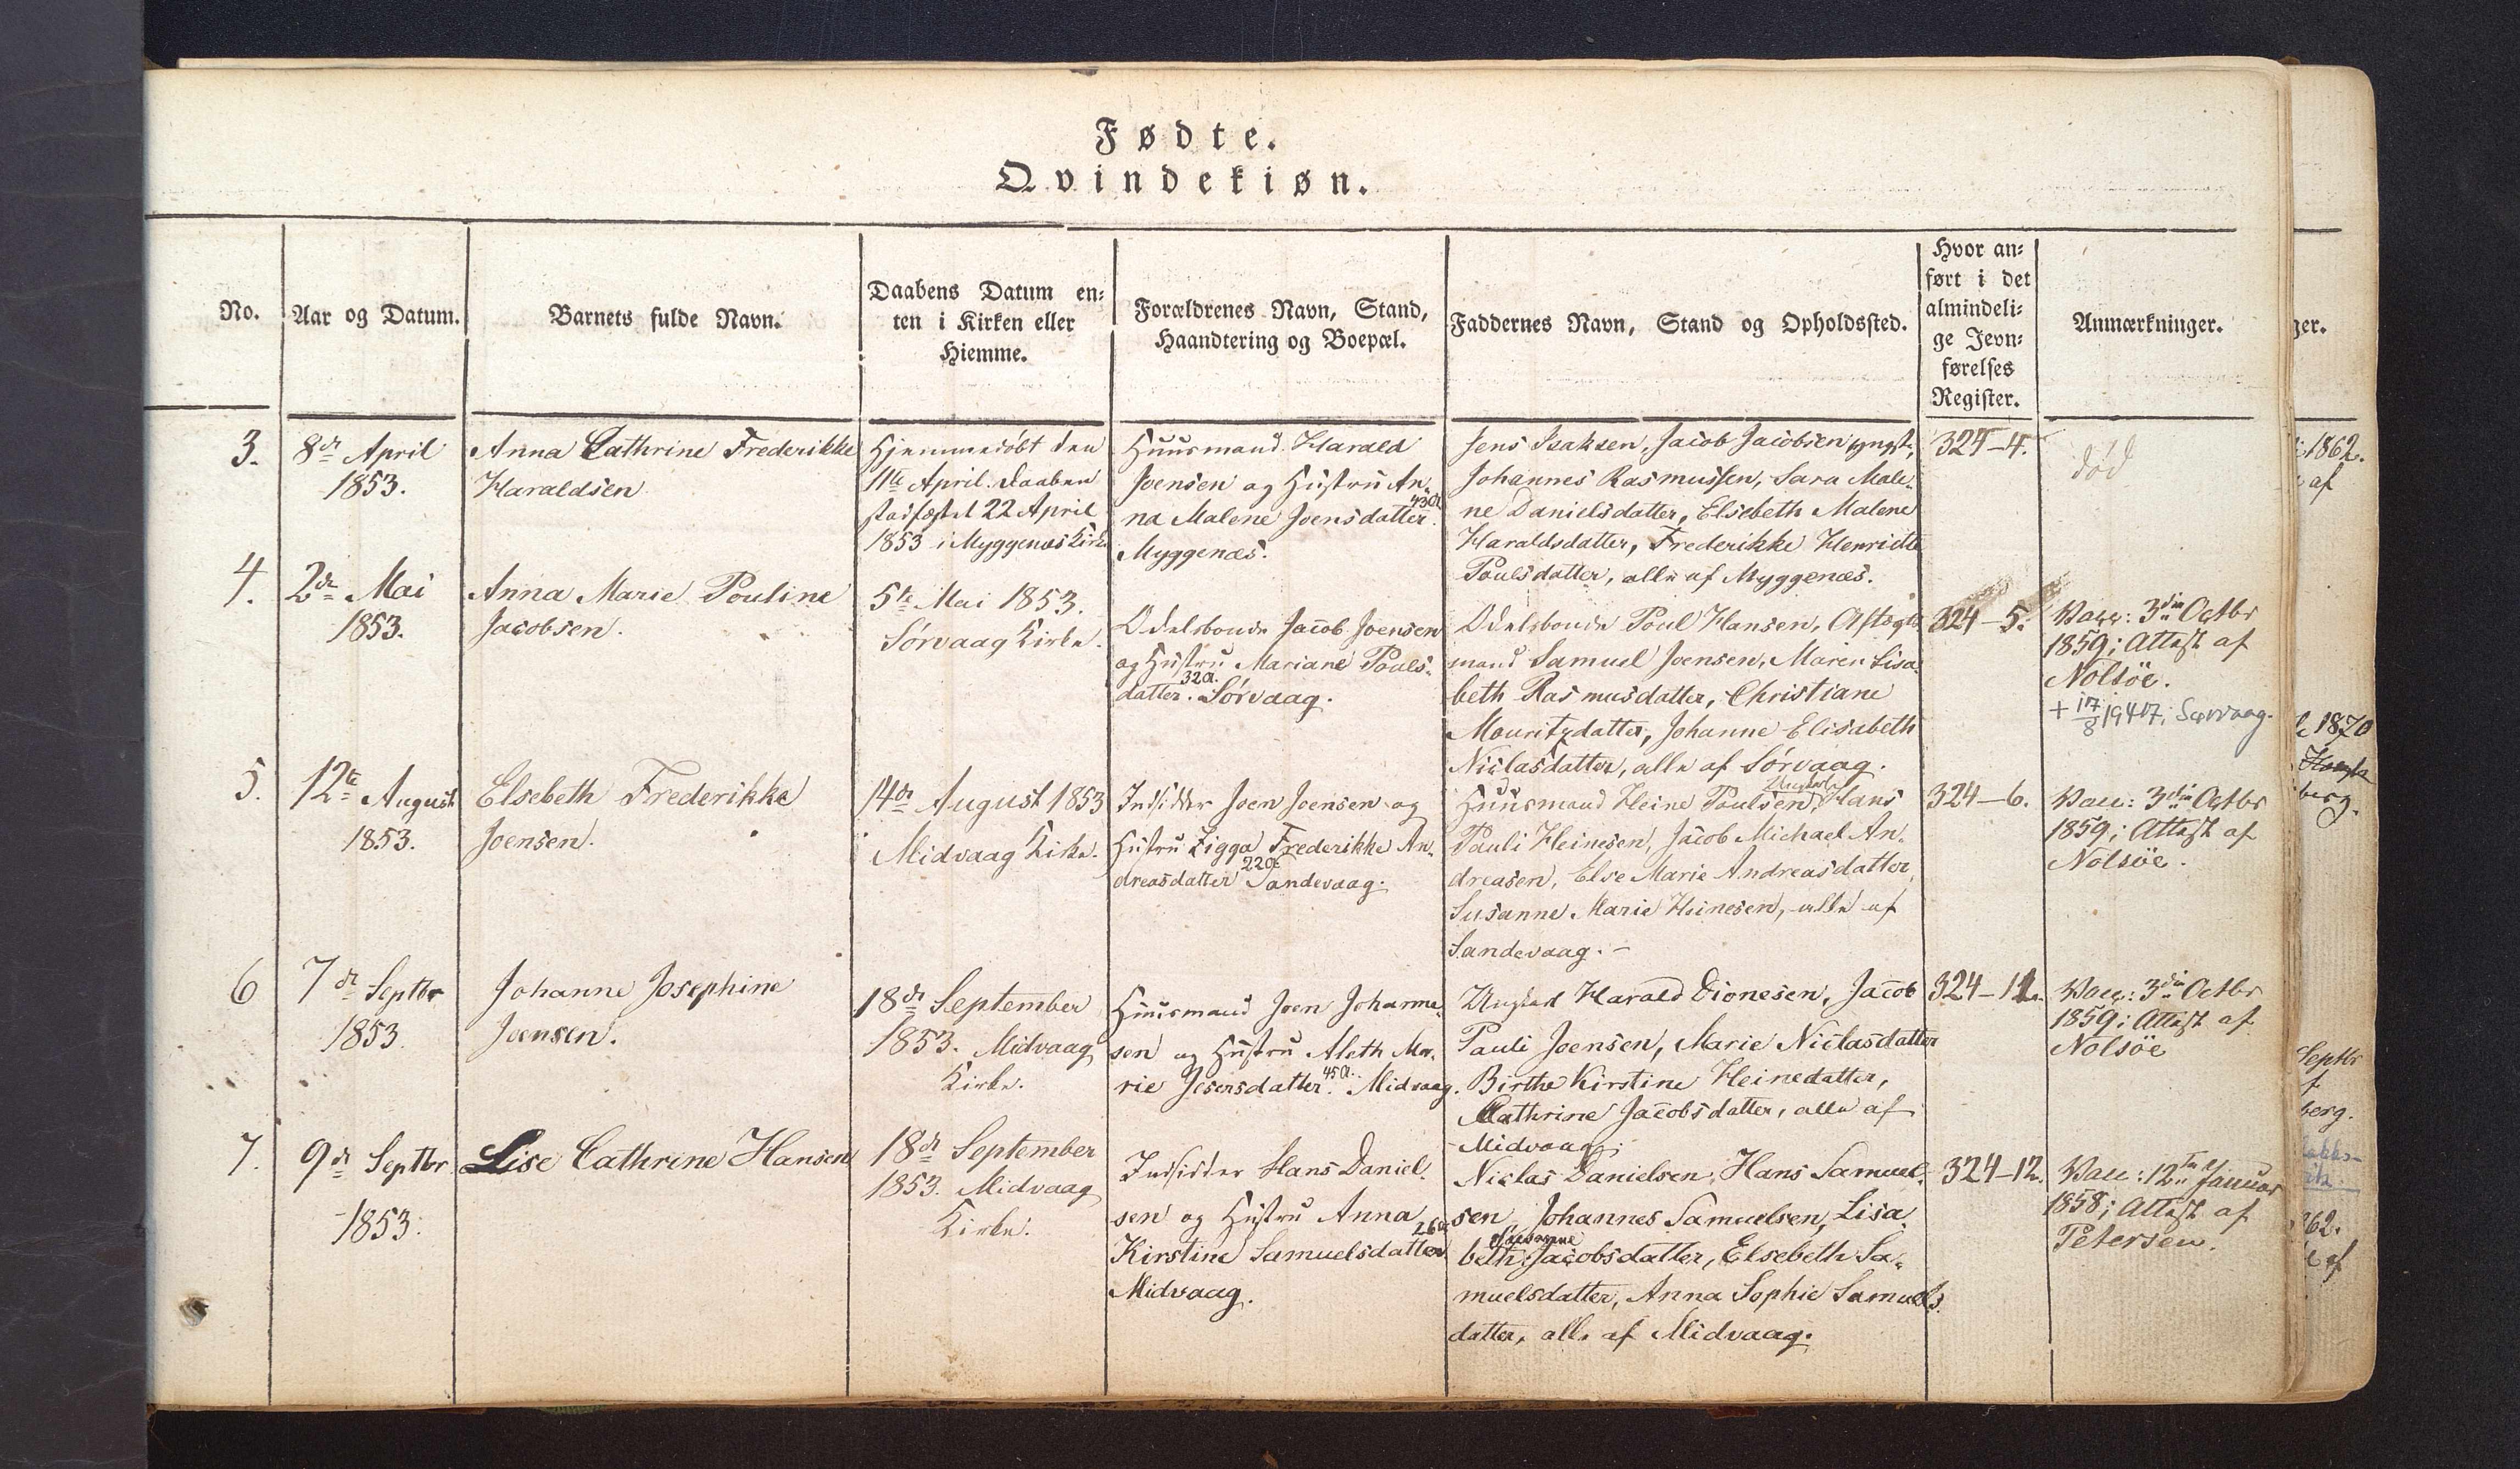 Fødte.
Qvindekiøn.
No.
Aar og Datum.
Barnets fulde Navn.
Daabens Datum en-
ten i Kirken eller
Hiemme.
Forældrenes Navn, Stand,
Haandtering og Boepæl.
Faddernes Navn, Stand og Opholdssted.
Hvor an-
ført i det
almindeli-
ge Jevn-
førelses
Register.
Anmærkninger.
3.
8de April
1853.
Anna Cathrine Frederikke
Haraldsen
Hjemmedöbt den
11te April. Daaben
stadfæstet 22 April
1853 i Myggenæs Kirke
Huusmand Harald
Joensen og Hustru An-
na Malene Joensdatter. 43 a
Myggenæs.
Jens Isaksen, Jacob Jacobsen yngst,
Johannes Rasmussen, Sara Male-
ne Danielsdatter, Elsebeth Malene
Haraldsdatter, Frederikke Henriette
Poulsdatter, alle af Myggenæs.
324-4.
död
4.
2den Mai
1853.
Anna Marie Pouline
Jacobsen.
5te Mai 1853.
Sörvaag Kirke.
Odelsbonde Jacob Joensen
og Hustru Mariane Pouls-
datter. 32 a. Sörvaag.
Odelsbonde Poul Hansen, Aftægts
mand Samuel Joensen, Maren Lisa-
beth Rasmusdatter, Christiane
Mouritzdatter, Johanne Elisabeth
Niclasdatter, alle af Sörvaag.
324-5.
Vacc: 3die Octbr
1859; Attest af
Nolsöe.
+ 17/8 1947, Sørvaag.
5.
12te August
1853.
Elsebeth Frederikke
Joensen.
14de August 1853
Midvaag Kirke.
Indsidder Joen Joensen og
Hustru Zigga Frederikke An-
dreasdatter 22 a Sandevaag.
Huusmand Heine Poulsen, Ungkarle Hans
Pauli Heinesen, Jacob Michael An-
dreasen, Else Marie Andreasdatter,
Susanne Marie Heinesen, alle af
Sandevaag. -
324-6.
Vacc: 3die Octbr
1859; Attest af
Nolsöe.
6
7de Septbr
1853
Johanne Josephine
Joensen.
18de September
1853. Midvaag
Kirke.
Huusmand Joen Johanne-
sen og Hustru Aleth Ma-
rie Jesersdatter. 45 a. Midvaag.
Ungkarl Harald Dionesen, Jacob
Pauli Joensen, Marie Niclasdatter
Birthe Kirstine Heinedatter,
Cathrine Jacobsdatter, alle af
Midvaag.
324-11.
Vacc: 3die Octbr
1859; Attest af
Nolsöe
7.
9de Septbr
1853.
Lise Cathrine Hansen
18de September
1853. Midvaag
Kirke.
Indsidder Hans Daniel-
sen og Hustru Anna
Kirstine Samuelsdatter 26 a
Midvaag.
Niclas Danielsen, Hans Samuel-
sen, Johannes Samuelsen, Lisa-
beth Susanne Jacobsdatter, Elsebeth Sa-
muelsdatter, Anna Sophie Samuels-
datter, alle af Midvaag.
324-12.
Vacc: 12te Januar
1858; Attest af
Petersen.
ger.
1862.
af
1870
berg.
Septbr
berg.
862.
af